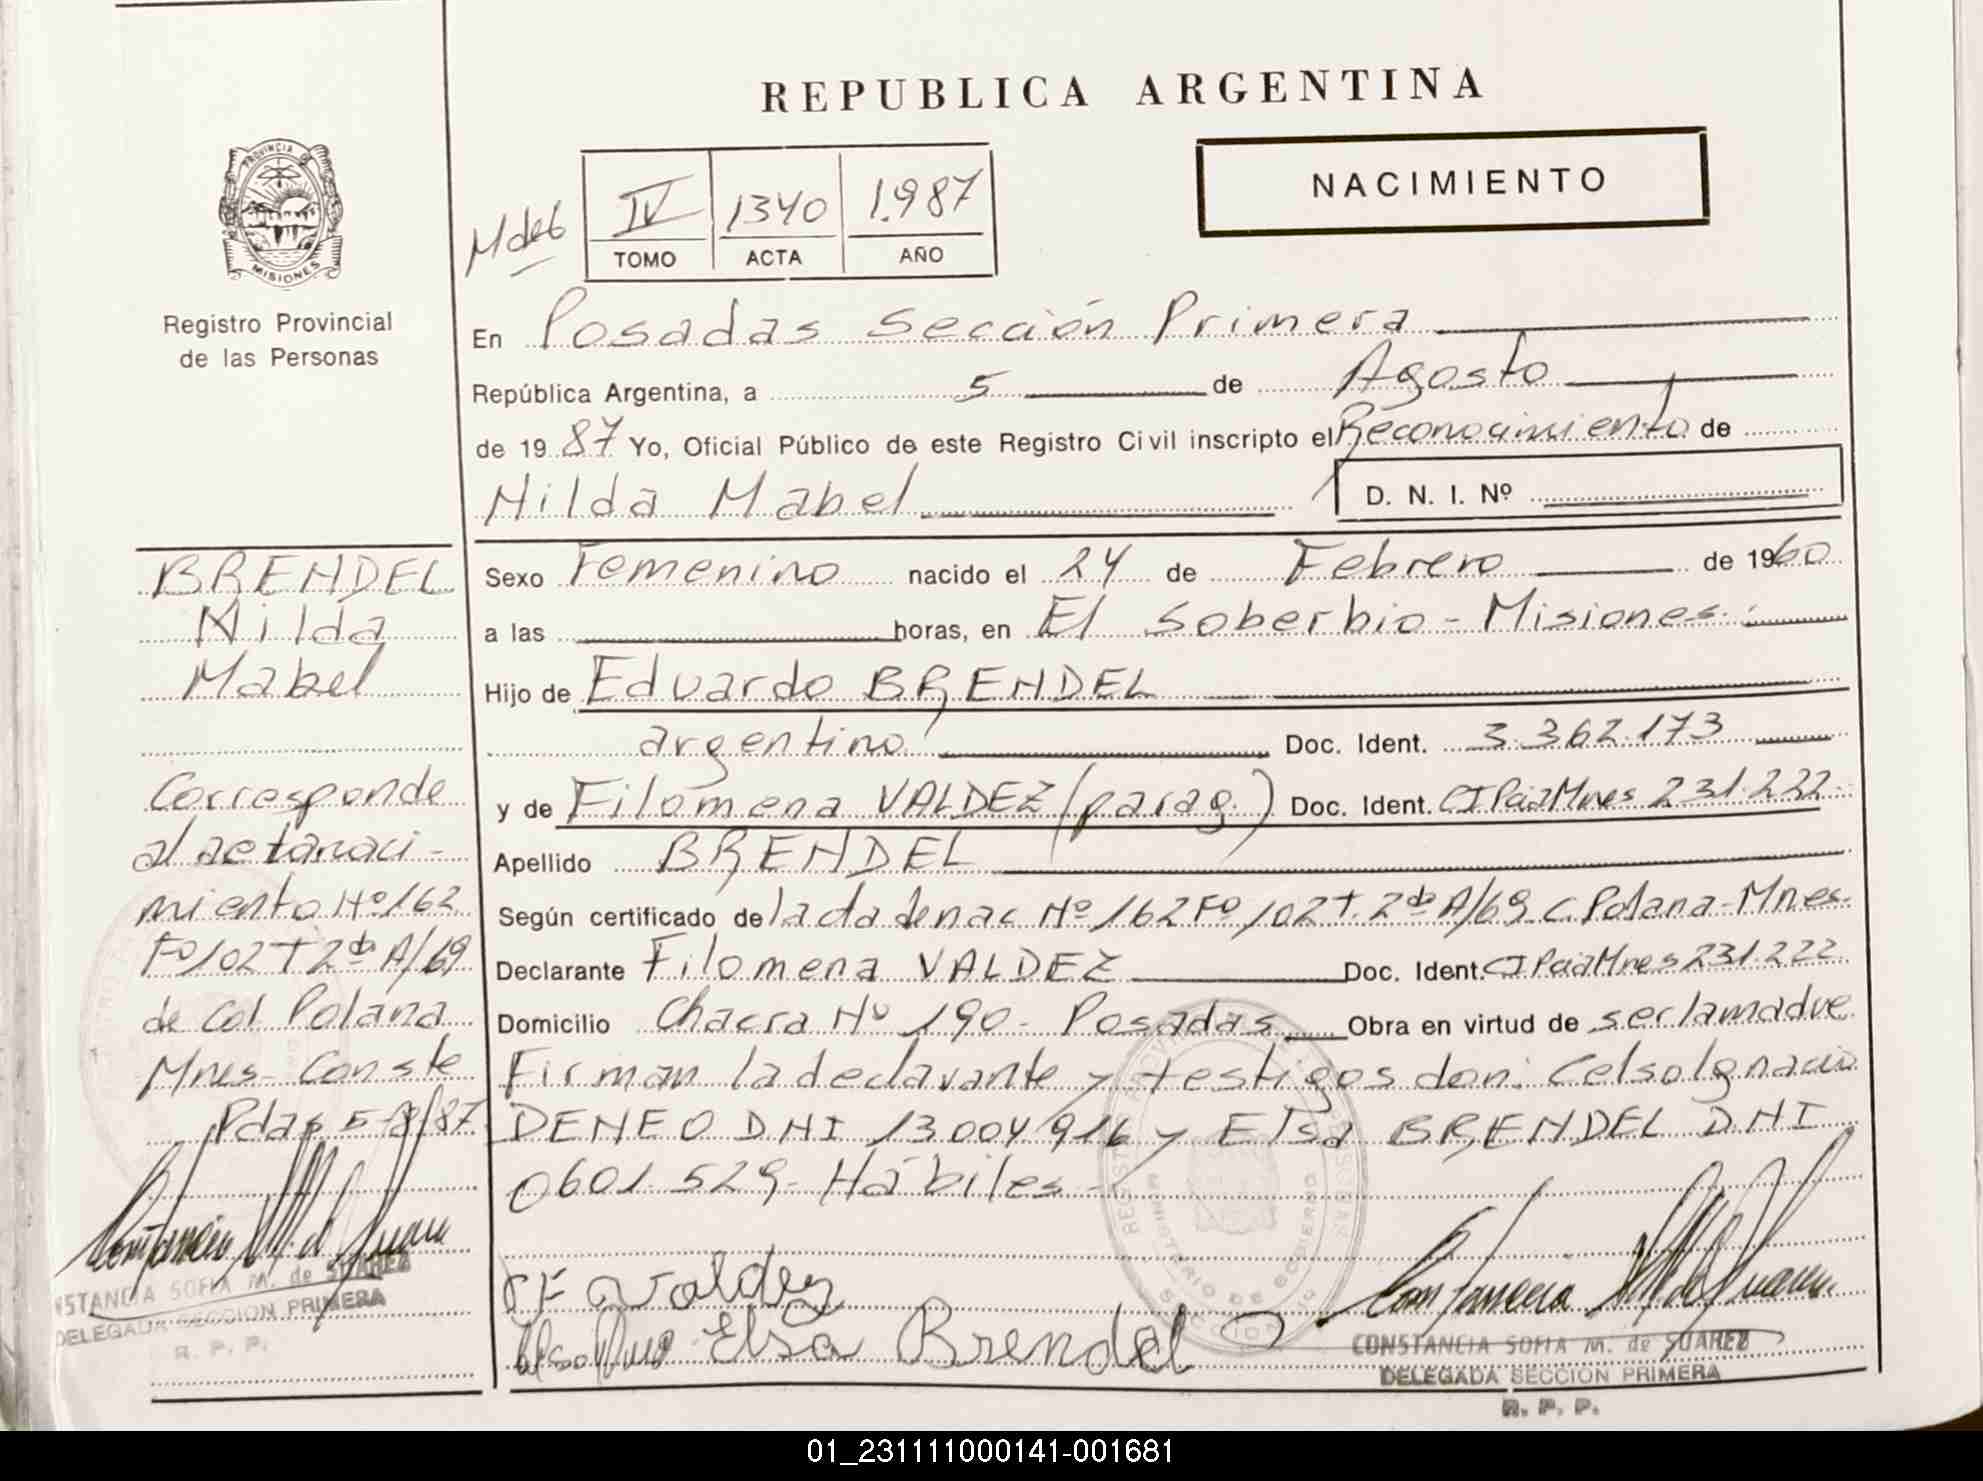 REPUBLICA ARGENTINA
PROVINCIA DE
MISIONES
Registro Provincial
de las Personas
NACIMIENTO
IV 1340 1.987
TOMO ACTA AÑO
En Posadas Sección Primera
República Argentina, a 5 de Agosto
de 1987 Yo, Oficial Público de este Registro Civil inscripto el Reconocimiento de
Nilda Mabel
D. N. I. Nº
BRENDEL
Nilda
Mabel
Corresponde
al acta naci-
miento Nº 162
Fº 102 T 2do A/69
de Col Polana
Mnes- Conste
Pdas 5-8/87
CONSTANCIA SOFIA M. de SUAREZ
DELEGADA SECCION PRIMERA
R. P. P.
Sexo Femenino nacido el 24 de Febrero de 1960
a las horas, en El Soberbio - Misiones
Hijo de Eduardo BRENDEL
argentino Doc. Ident. 3.362.173
y de Filomena VALDEZ (parag.) Doc. Ident. CI Pcia Mnes 231.222
Apellido BRENDEL
Según certificado de lacta de nac Nº 162 Fº 102 T. 2do A/69 C. Polana-Mnes-
Declarante Filomena VALDEZ Doc. Ident. CI Pcia Mnes 231.222
Domicilio Chacra Nº 190- Posadas Obra en virtud de ser la madre
Firman la declarante y testigos don: Celso Ignacio
DENEO DNI 13004916 y Elsa BRENDEL DNI
0601.529- Hábiles-
Valdez
Elsa Brendel
CONSTANCIA SOFIA M. de SUAREZ
DELEGADA SECCION PRIMERA
R. P. P.
01_231111000141-001681